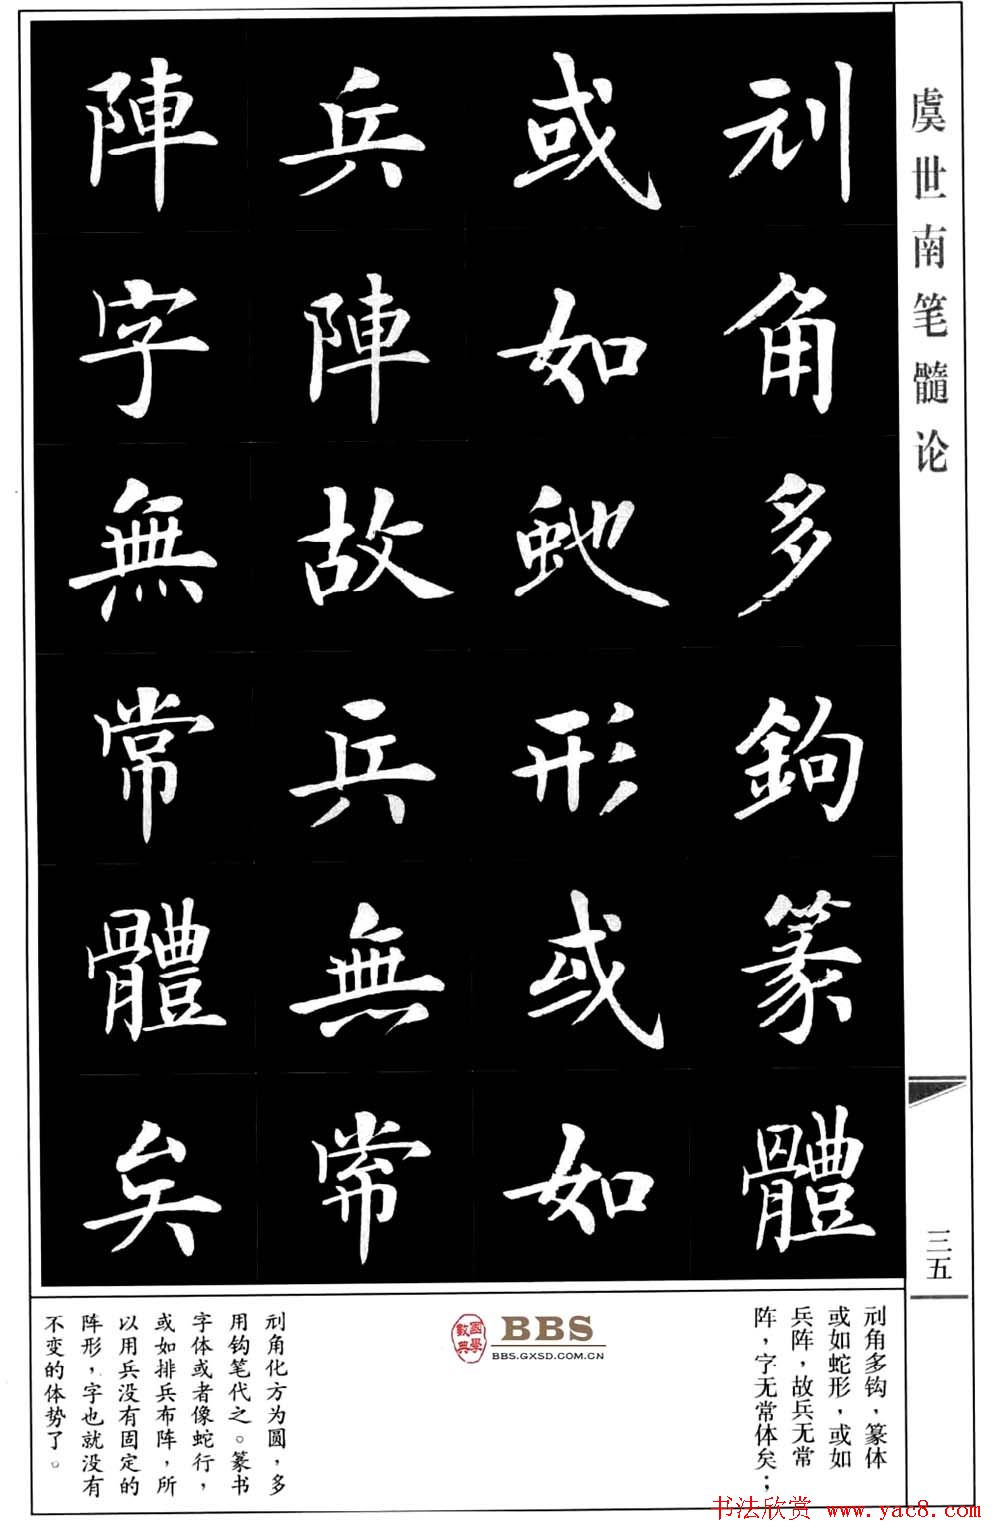 虞世南笔髓论
刓角多鉤篆體
或如虵形或如
兵陣故兵無常
陣字無常體矣
三五
刓角多钩，篆体
或如蛇形，或如
兵阵，故兵无常
阵，字无常体矣；
國學數典
BBS
BBS.GXSD.COM.CN
刓角化方为圆，多
用钩笔代之。篆书
字体或者像蛇行，
或如排兵布阵，所
以用兵没有固定的
阵形，字也就没有
不变的体势了。
书法欣赏 www.yac8.com